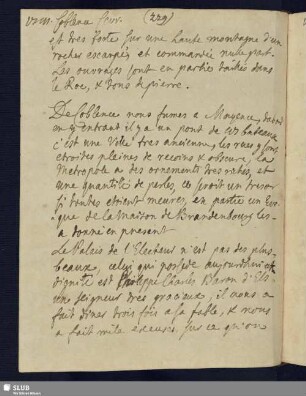 (229)
est tres forte sur une haute montagne d'un
rocher escarpée et commandée nulle part.
Les ouvrages sont en partie taillés dans
le Roc, & bons de pierre.
De Coblence nous fumes a Mayence,
en y entrant il y a un pont de bateaux
c'est une Ville tres ancienne, les rues y sont
etroites pleines de recoins & obscure, la
Metropole a des ornements tres riches, et
une quantité de perles, ce seroit un tresor
si toutes etoient meures, en partie un Eve-
que de la Maison de Brandenbourg les
a donné en present
Le Palais de l'Electeur n'est pas des plus
beaux, celui qui possede aujourdhui cette
dignité est Philippe Charles Baron d'Elz
une seigneur tres gracieux, il nous a
fait diner trois fois a sa table, & nous
a fait mile excuses sur ce qu'on
SLUB